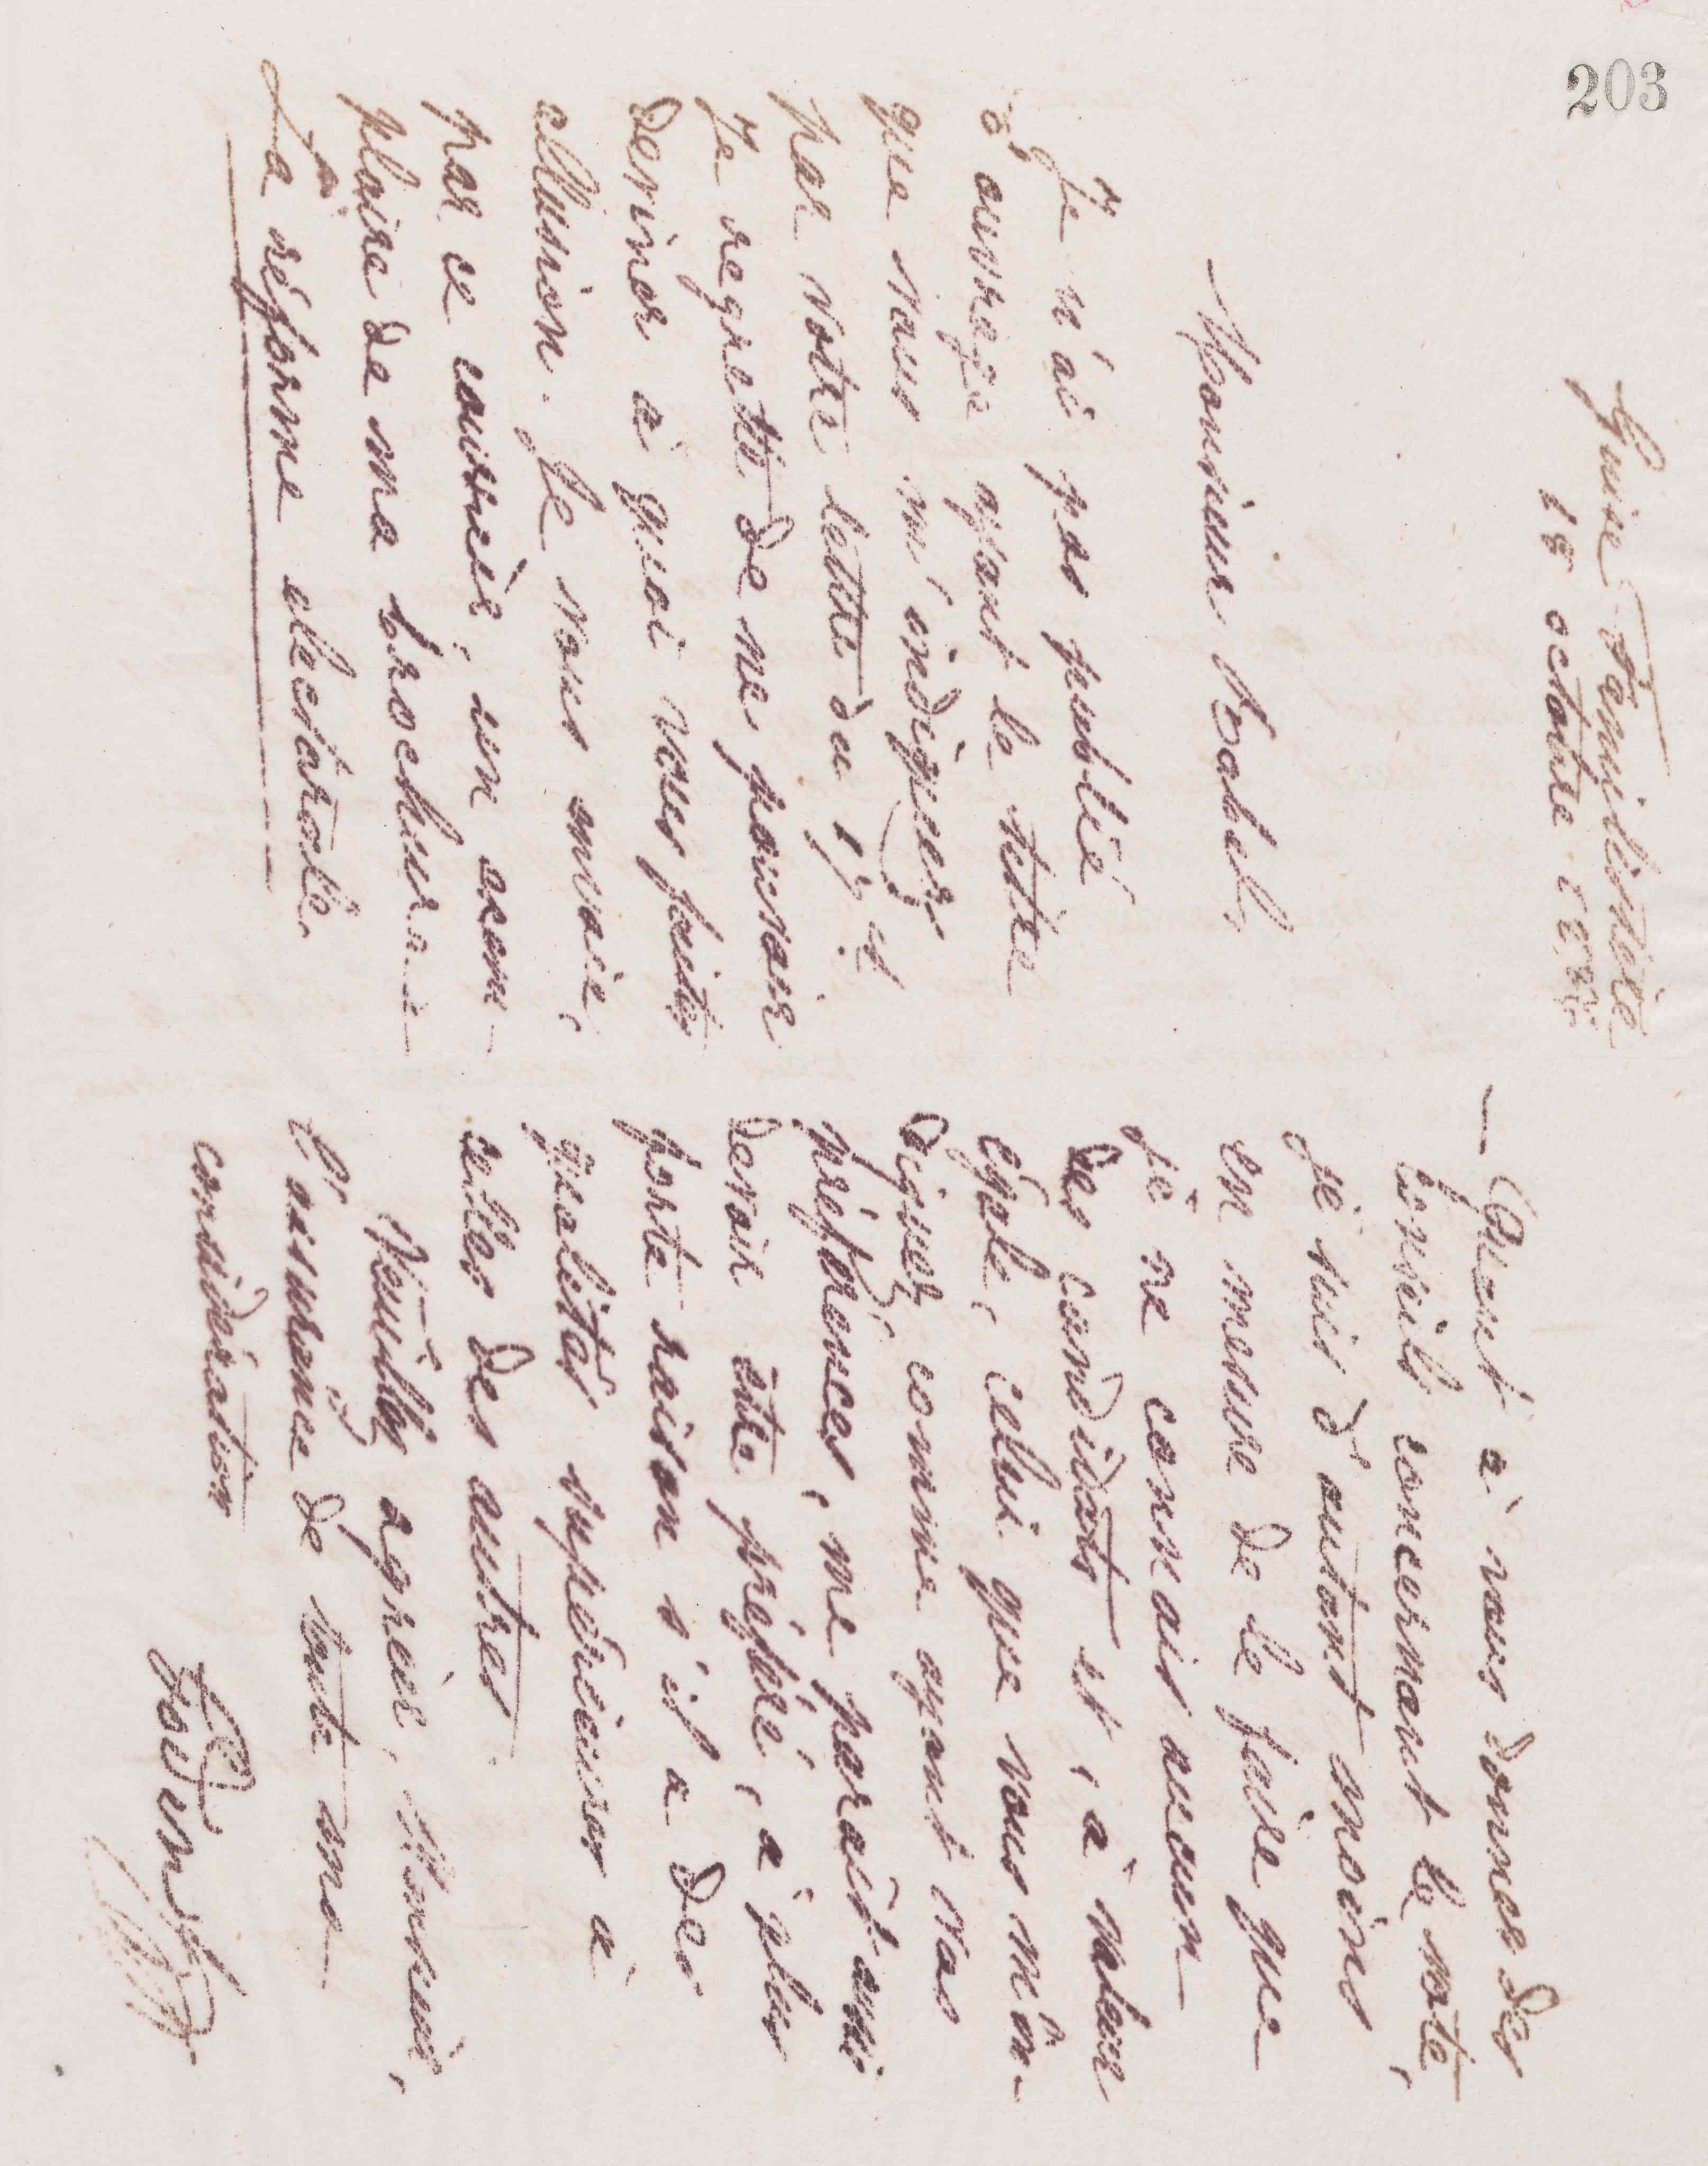 203
Guise Familistère
18 octobre 188
Monsieur Babel,
Je n'ai pas publié
d'ouvrage ayant le titre
que vous m'indiquez
par votre lettre du 17 et
je regrette de ne pouvoir
deviner à quoi vous faites
allusion. Je vous envoie,
par ce courrier, un exem-
plaire de ma brochure :
La réforme électorale.
— Quant à vous donner des
conseils concernant le vote,
je suis d'autant moins
en mesure de le faire que
je ne connais aucun
des candidats et, à valeur
égale, celui que vous m'in-
diquez comme ayant vos
préférences, me paraît aussi
devoir être préféré, à plus
forte raison s'il a des
qualités supérieures à
celles des autres.
Veuillez agréer, Monsieur,
l'assurance de toute ma
considération
Godin